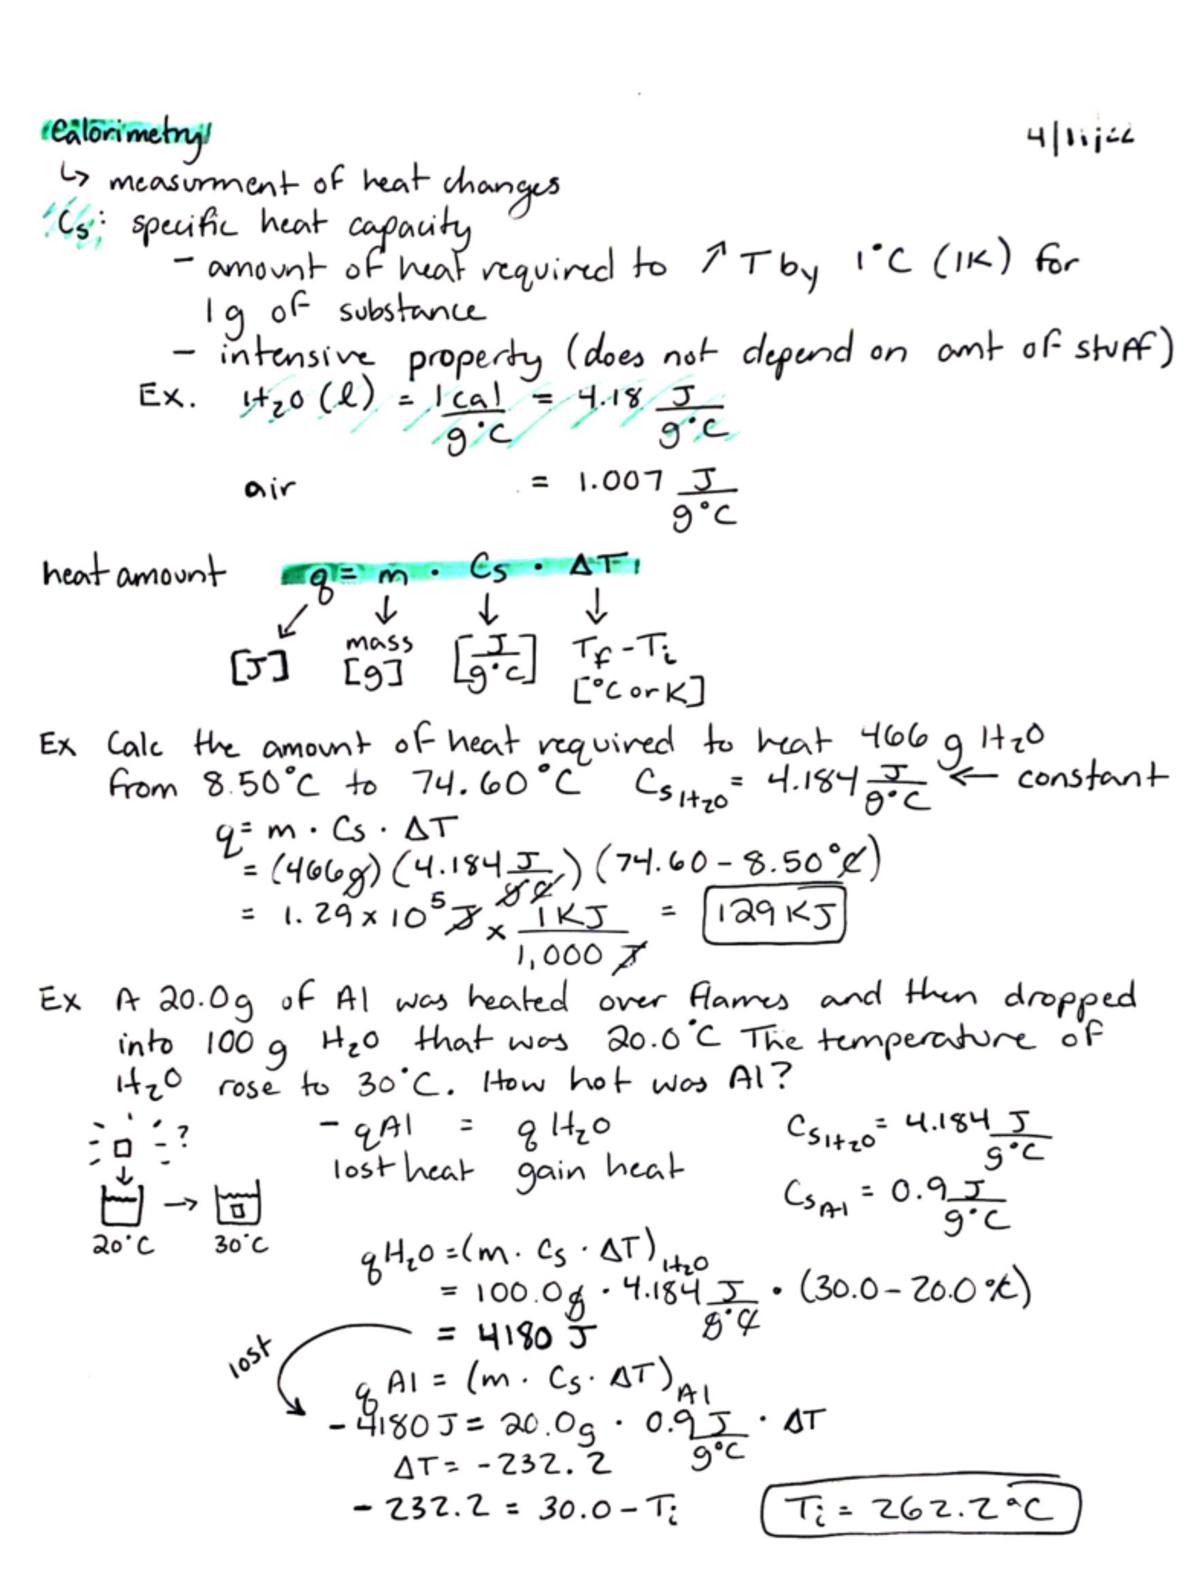 Calorimetry
↳ measurment of heat changes
Cs: specific heat capacity
- amount of heat required to ↑ T by 1°C (1K) for
1g of substance
- intensive property (does not depend on amt of stuff)
Ex. H₂O (l) = 1 cal/g°C = 4.18 J/g°C
air = 1.007 J/g°C
heat amount q = m · Cs · ΔT
↙ ↓ ↓ ↓
[J] mass [g] [J/g°C] Tf - Ti [°C or K]
Ex Calc the amount of heat required to heat 466 g H₂O
from 8.50°C to 74.60°C Cs H₂O = 4.184 J/g°C ← constant
q = m · Cs · ΔT
= (466g) (4.184 J/g°C) (74.60 - 8.50°C)
= 1.29 x 10⁵ J x 1KJ/1,000 J = 129 KJ
Ex A 20.0g of Al was heated over flames and then dropped
into 100 g H₂O that was 20.0°C The temperature of
H₂O rose to 30°C. How hot was Al?
?
20°C → 30°C
- qAl = qH₂O
lost heat gain heat
Cs H₂O = 4.184 J/g°C
Cs Al = 0.9 J/g°C
qH₂O = (m · Cs · ΔT) H₂O
= 100.0g · 4.184 J/g°C · (30.0 - 20.0°C)
= 4180 J
lost
q Al = (m · Cs · ΔT) Al
- 4180 J = 20.0g · 0.9 J/g°C · ΔT
ΔT = -232.2
- 232.2 = 30.0 - Ti
Ti = 262.2°C